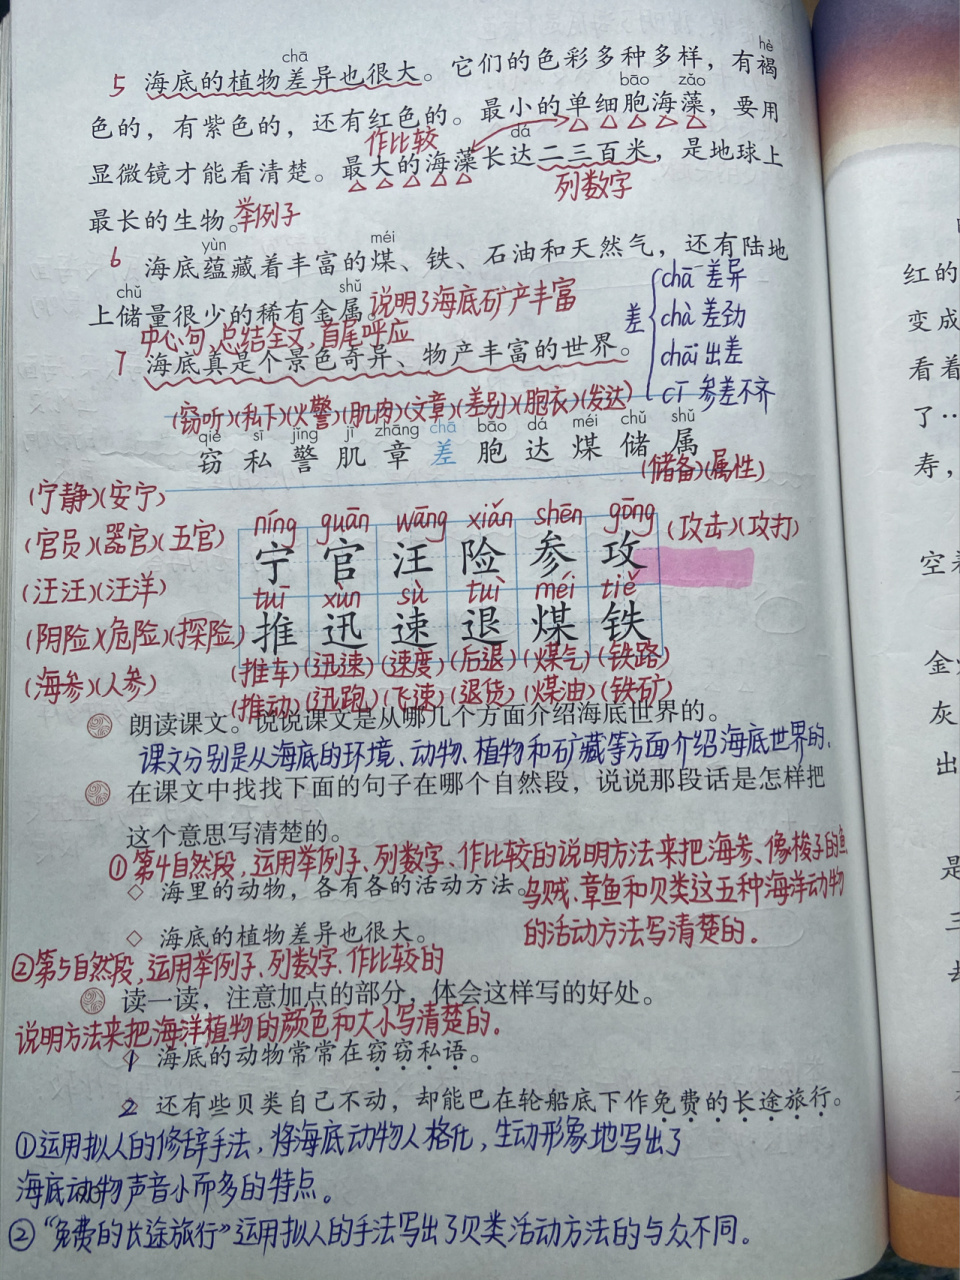 chā hè
5 海底的植物差异也很大。它们的色彩多种多样，有褐
bāo zǎo
色的，有紫色的，还有红色的。最小的单细胞海藻，要用
作比较 dá
显微镜才能看清楚。最大的海藻长达二三百米，是地球上
列数字
最长的生物。举例子
yùn méi
6 海底蕴藏着丰富的煤、铁、石油和天然气，还有陆地
chǔ shǔ
上储量很少的稀有金属。说明了海底矿产丰富
中心句，总结全文，首尾呼应
7 海底真是个景色奇异、物产丰富的世界。
差
chā 差异
chà 差劲
chāi 出差
cī 参差不齐
(窃听)(私下)(火警)(肌肉)(文章)(差别)(胞衣)(发达)
qiè sī jǐng jī zhāng chā bāo dá méi chǔ shǔ
窃 私 警 肌 章 差 胞 达 煤 储 属
(储备)(属性)
(宁静)(安宁)
(官员)(器官)(五官)
(汪汪)(汪洋)
(阴险)(危险)(探险)
(海参)(人参)
níng guān wāng xiǎn shēn gōng
宁 官 汪 险 参 攻
(攻击)(攻打)
tuī xùn sù tuì méi tiě
推 迅 速 退 煤 铁
(推车)(迅速)(速度)(后退)(煤气)(铁路)
(推动)(迅跑)(飞速)(退货)(煤油)(铁矿)
朗读课文。说说课文是从哪几个方面介绍海底世界的。
课文分别是从海底的环境、动物、植物和矿藏等方面介绍海底世界的。
在课文中找找下面的句子在哪个自然段，说说那段话是怎样把
这个意思写清楚的。
①第4自然段，运用举例子、列数字、作比较的说明方法来把海参、像梭子的鱼
◇ 海里的动物，各有各的活动方法。
乌贼、章鱼和贝类这五种海洋动物
的活动方法写清楚的。
◇ 海底的植物差异也很大。
②第5自然段，运用举例子、列数字、作比较的
读一读，注意加点的部分，体会这样写的好处。
说明方法来把海洋植物的颜色和大小写清楚的。
1 海底的动物常常在窃窃私语。
2 还有些贝类自己不动，却能巴在轮船底下作免费的长途旅行。
①运用拟人的修辞手法，将海底动物人格化，生动形象地写出了
海底动物声音小而多的特点。
②“免费的长途旅行”运用拟人的手法写出了贝类活动方法的与众不同。
红的
变成
看着
了…
寿，
金
灰
出
是
三